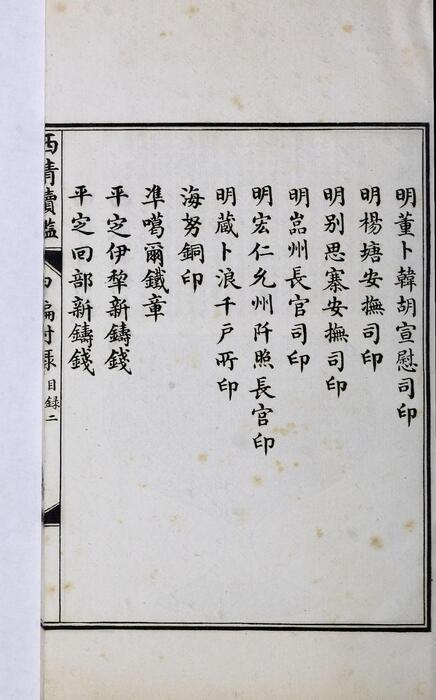 明董卜韓胡宣慰司印
明楊塘安撫司印
明別思寨安撫司印
明嵓州長官司印
明宏仁乞州阡照長官印
明藏卜浪千戶所印
海努銅印
準噶爾鐵章
平定伊犂新鑄錢
平定回部新鑄錢
西清續鑑
甲編附錄
目録二